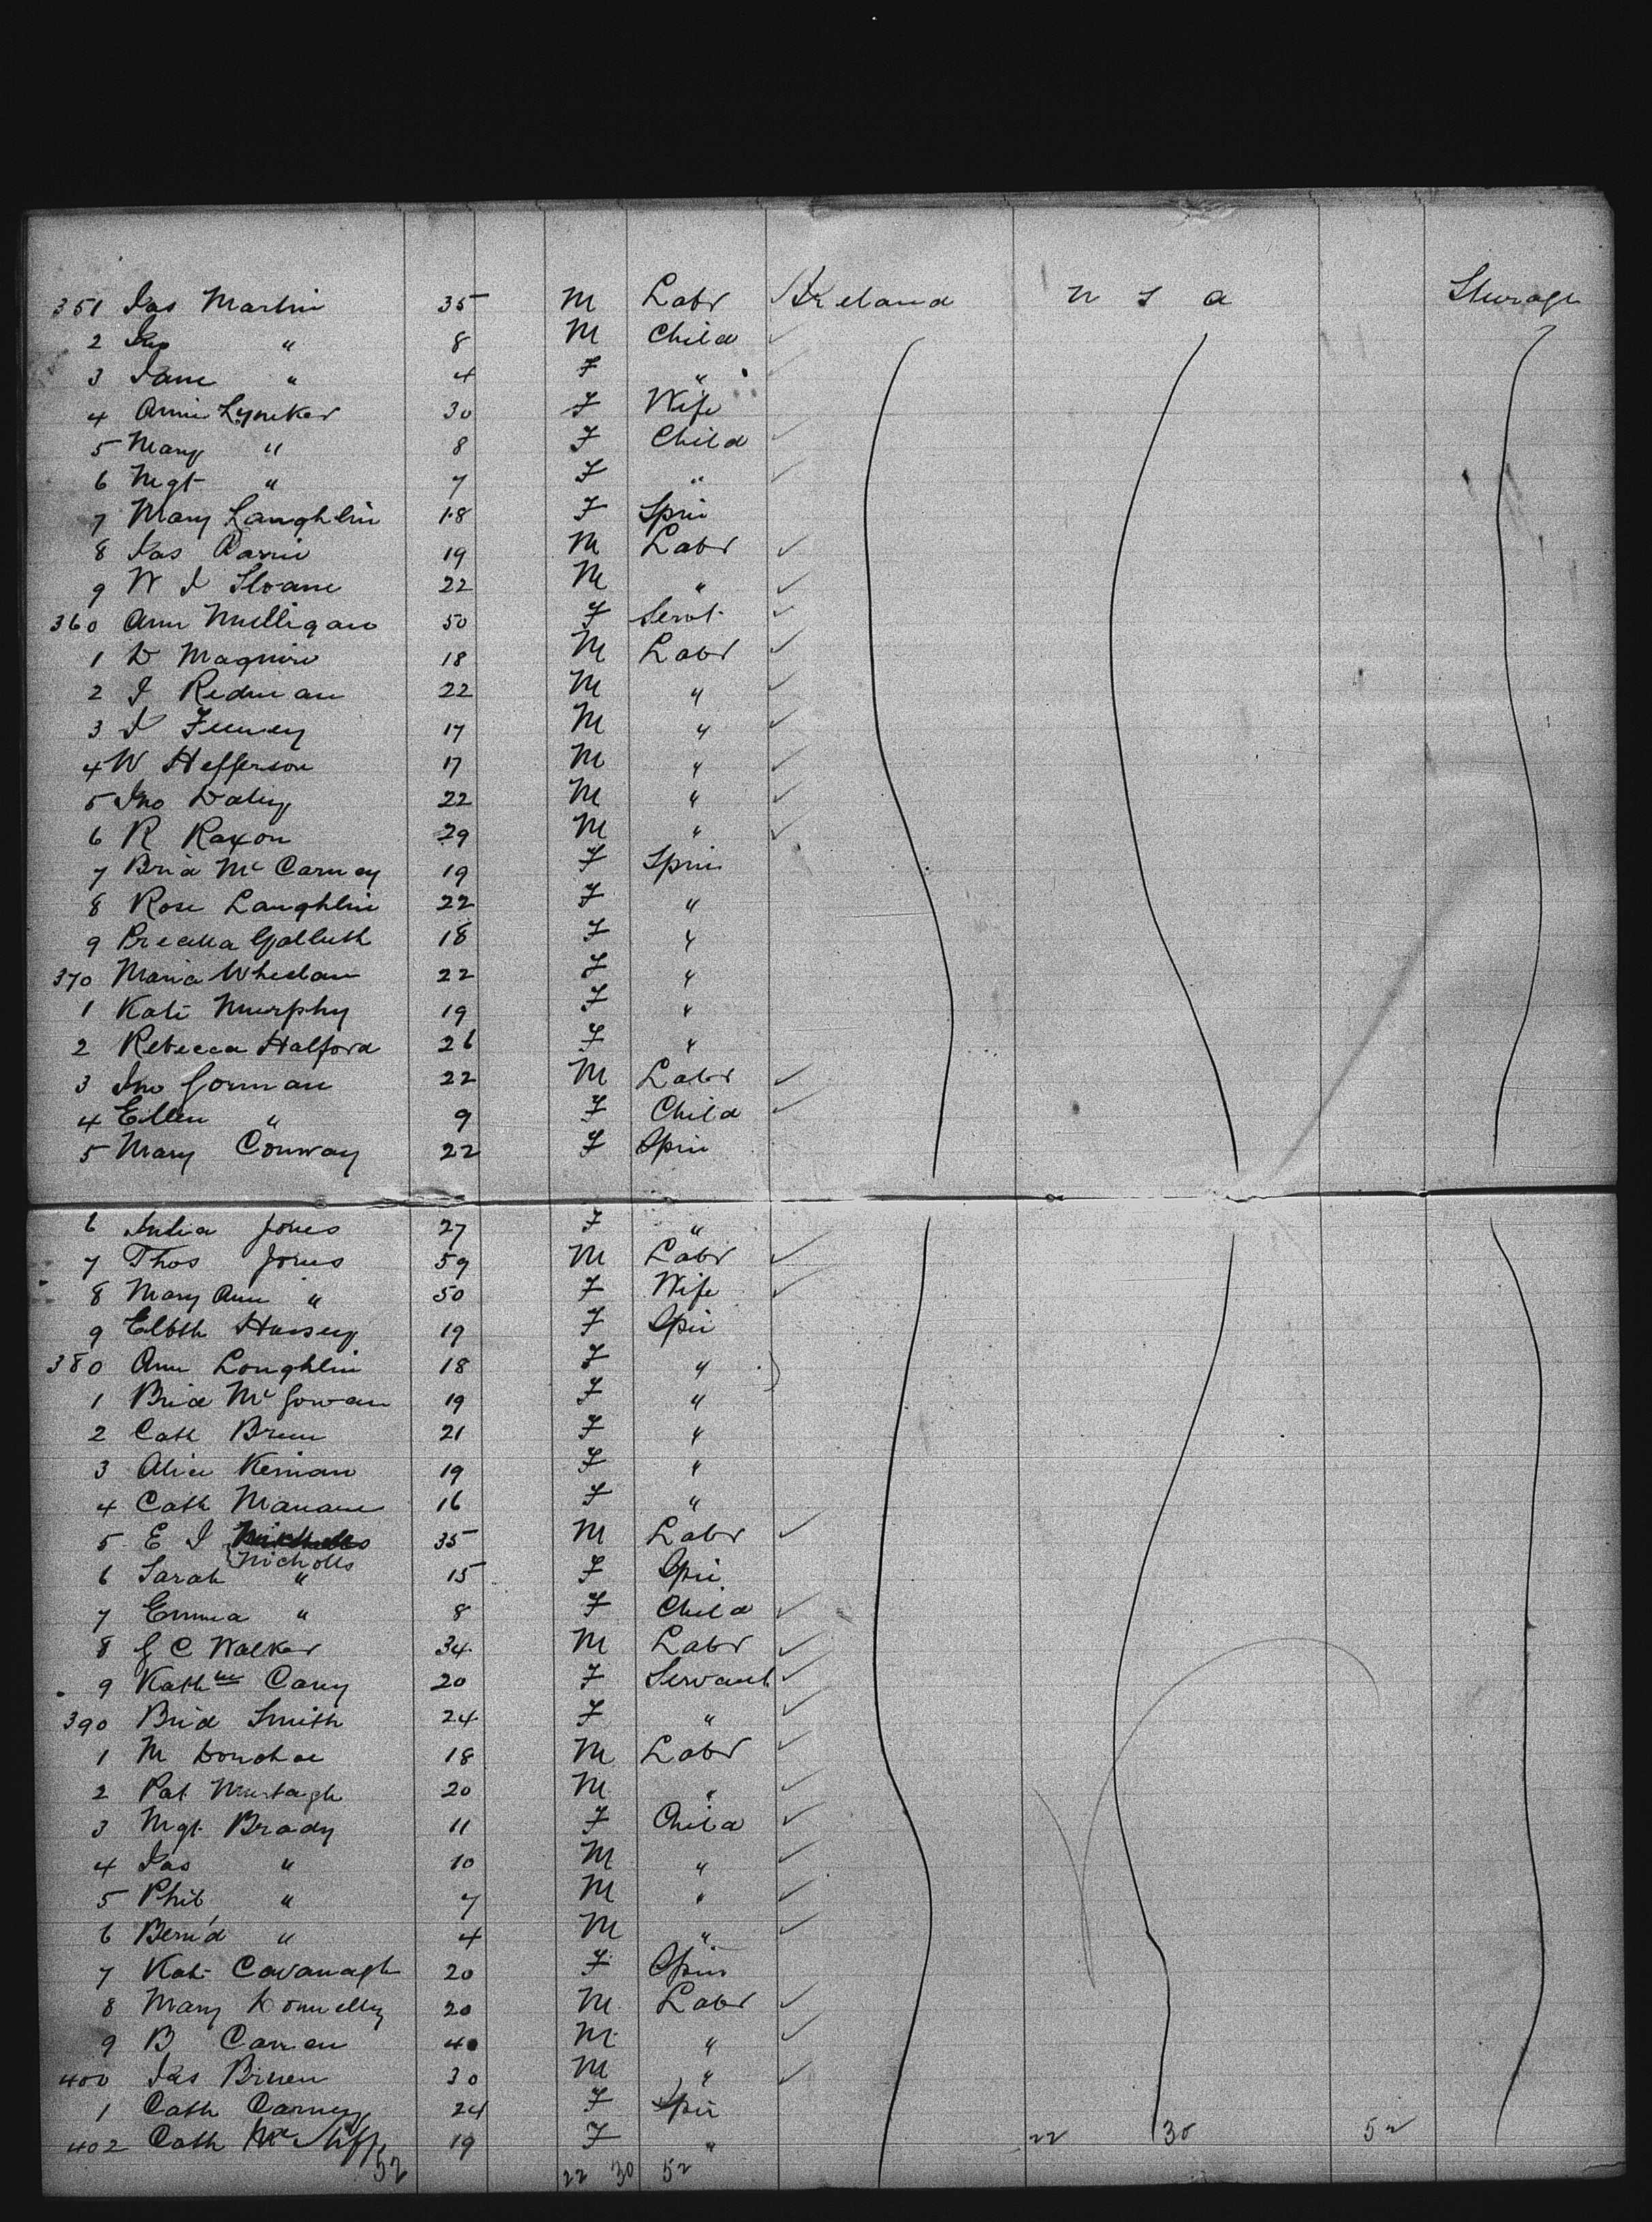 351 Jas Martin 35 M Labr Ireland U S A Steerage
2 Jno " 8 M Child
3 Jane " 4 F "
4 Annie Lyneker 30 F Wife
5 Mary " 8 F Child
6 Mgt " 7 F "
7 Mary Laughlin 18 F Spin
8 Jas 19 M Labr
9 W J Sloane 22 M "
360 Ann Mulligan 50 F Servt
1 D Maguire 18 M Labr
2 J Redman 22 M "
3 J Feeney 17 M "
4 W Hefferson 17 M "
5 Jno Daley 22 M "
6 R Raxon 29 M "
7 Brid Mc Carney 19 F Spin
8 Rose Laughlin 22 F "
9 18 F "
370 Maria Wheelan 22 F "
1 Kate Murphy 19 F "
2 Rebecca Halford 26 F "
3 Jno Gorman 22 M Labr
4 Ellen " 9 F Child
5 Mary Conway 22 F Spin
6 Julia Jones 27 F "
7 Thos Jones 59 M Labr
8 Mary Ann " 50 F Wife
9 Elbth Hussey 19 F Spin
380 Ann Loughlin 18 F "
1 Brid Mc Gowan 19 F "
2 Cath Breen 21 F "
3 Alice Kernan 19 F "
4 Cath Manane 16 F "
5 E J 35 M Labr
Nicholls
6 Sarah " 15 F Spin
7 Emma " 8 F Child
8 G C Walker 34 M Labr
9 Kathne Carey 20 F Servant
390 Brid Smith 24 F "
1 M Donohoe 18 M Labr
2 Pat Murtagh 20 M "
3 Mgt Brady 11 F Child
4 Jas " 10 M "
5 Phil " 7 M "
6 Bern'd " 4 M "
7 Kate Cavanagh 20 F Spin
8 Mary Donnelly 20 M Labr
9 B Curran 40 M "
400 Jas Brien 30 M "
1 Cath Carney 24 F Spin
402 Cath Mc 19 F " 22 30 52
52 22 30 52